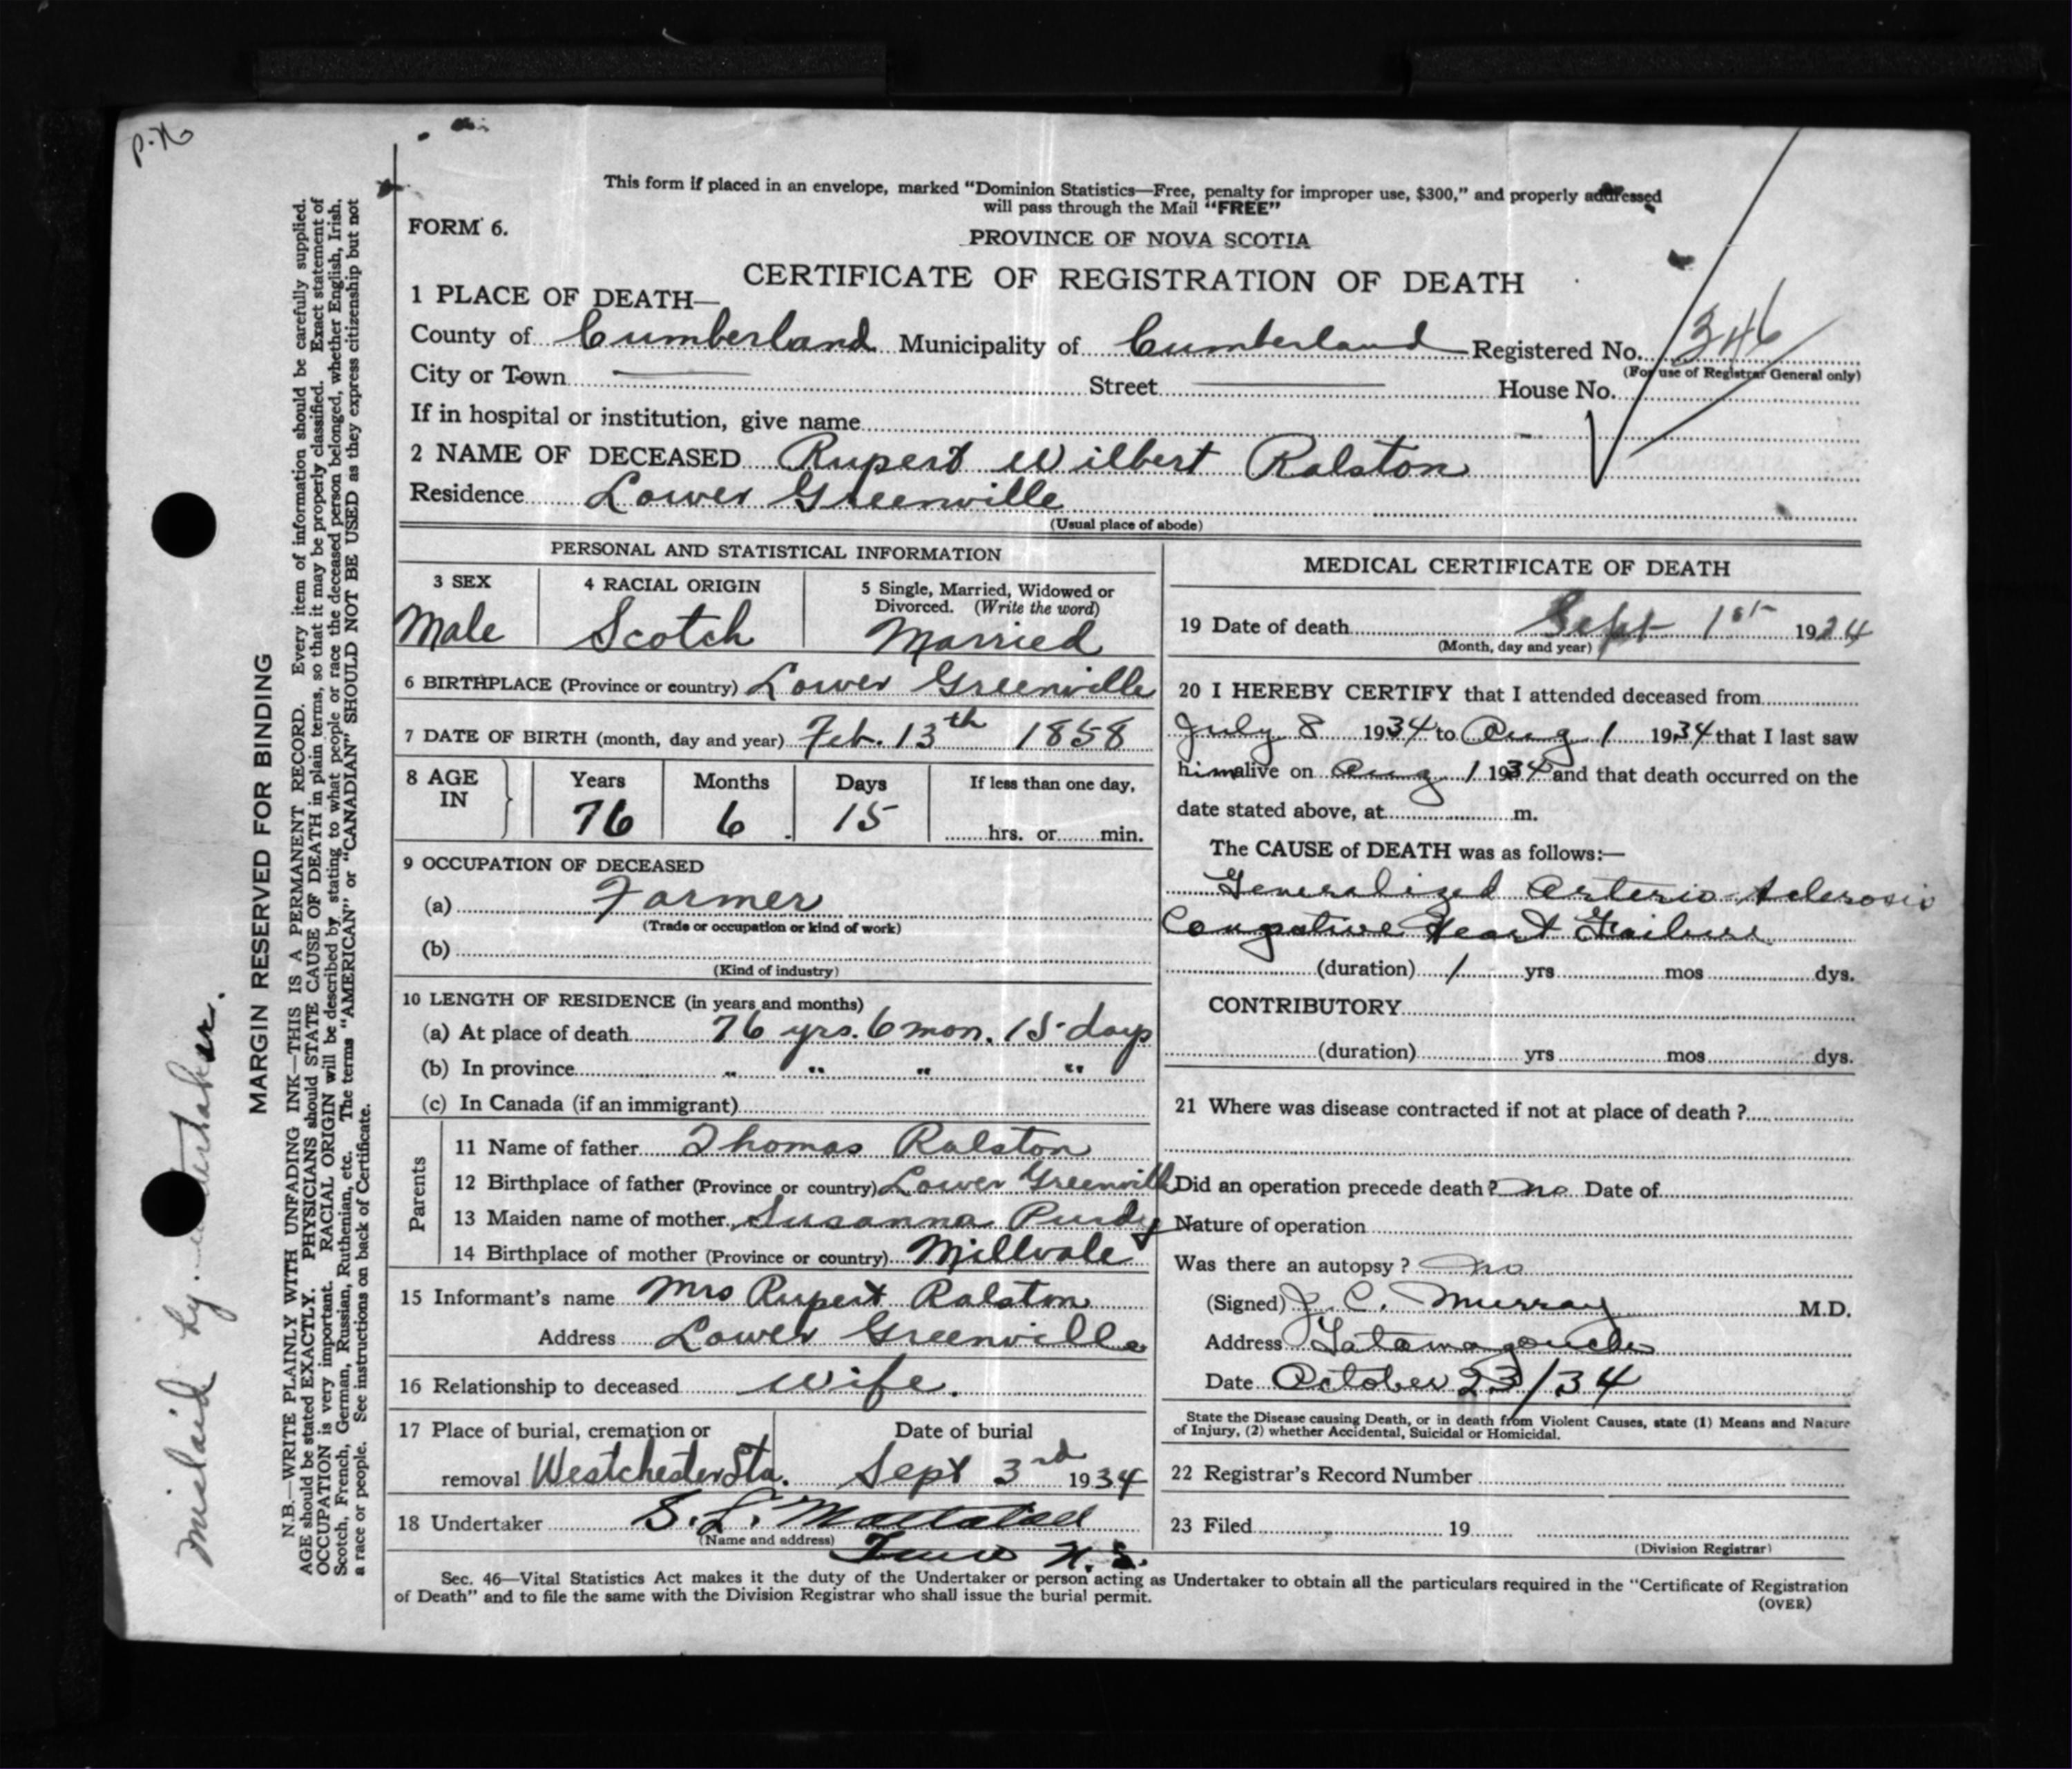 P.N
This form if placed in an envelope, marked "Dominion Statistics—Free, penalty for improper use, $300," and properly addressed
will pass through the Mail "FREE"
FORM 6.
PROVINCE OF NOVA SCOTIA
CERTIFICATE OF REGISTRATION OF DEATH
1 PLACE OF DEATH—
County of Cumberland Municipality of Cumberland Registered No. 346
(For use of Registrar General only)
City or Town Street House No.
If in hospital or institution, give name
2 NAME OF DECEASED Rupert Wilbert Ralston
Residence Lower Greenville
(Usual place of abode)
PERSONAL AND STATISTICAL INFORMATION
3 SEX 4 RACIAL ORIGIN 5 Single, Married, Widowed or
Divorced. (Write the word)
Male Scotch Married
6 BIRTHPLACE (Province or country) Lower Greenville
7 DATE OF BIRTH (month, day and year) Feb. 13th 1858
8 AGE IN Years Months Days If less than one day,
76 6 15 hrs. or min.
9 OCCUPATION OF DECEASED
(a) Farmer
(Trade or occupation or kind of work)
(b)
(Kind of industry)
10 LENGTH OF RESIDENCE (in years and months)
(a) At place of death 76 yrs. 6 mon. 15 days
(b) In province " " " "
(c) In Canada (if an immigrant)
Parents
11 Name of father Thomas Ralston
12 Birthplace of father (Province or country) Lower Greenville
13 Maiden name of mother Susanna Purdy
14 Birthplace of mother (Province or country) Millvale
15 Informant's name Mrs Rupert Ralston
Address Lower Greenville
16 Relationship to deceased wife.
17 Place of burial, cremation or Date of burial
removal Westchester Sta. Sept 3rd 1934
18 Undertaker S. L. Mattatall
(Name and address)
Truro N.S.
MEDICAL CERTIFICATE OF DEATH
19 Date of death Sept 1st 1934
(Month, day and year)
20 I HEREBY CERTIFY that I attended deceased from
July 8 1934 to Aug 1 1934 that I last saw
him alive on Aug 1 1934 and that death occurred on the
date stated above, at m.
The CAUSE of DEATH was as follows:—
Generalized Arterio Sclerosis
Congestive Heart Failure
(duration) 1 yrs mos dys.
CONTRIBUTORY
(duration) yrs mos dys.
21 Where was disease contracted if not at place of death ?
Did an operation precede death? no Date of
Nature of operation
Was there an autopsy ? no
(Signed) J. C. Murray M.D.
Address Tatamagouche
Date October 23/34
State the Disease causing Death, or in death from Violent Causes, state (1) Means and Nature
of Injury, (2) whether Accidental, Suicidal or Homicidal.
22 Registrar's Record Number
23 Filed 19
(Division Registrar)
Sec. 46—Vital Statistics Act makes it the duty of the Undertaker or person acting as Undertaker to obtain all the particulars required in the "Certificate of Registration
of Death" and to file the same with the Division Registrar who shall issue the burial permit.
(OVER)
mislaid by undertaker.
MARGIN RESERVED FOR BINDING
N.B.—WRITE PLAINLY WITH UNFADING INK—THIS IS A PERMANENT RECORD. Every item of information should be carefully supplied.
AGE should be stated EXACTLY. PHYSICIANS should STATE CAUSE OF DEATH in plain terms, so that it may be properly classified. Exact statement of
OCCUPATION is very important. RACIAL ORIGIN will be described by stating to what people or race the deceased person belonged, whether English, Irish,
Scotch, French, German, Russian, Ruthenian, etc. The terms "AMERICAN" or "CANADIAN" SHOULD NOT BE USED as they express citizenship but not
a race or people. See instructions on back of Certificate.